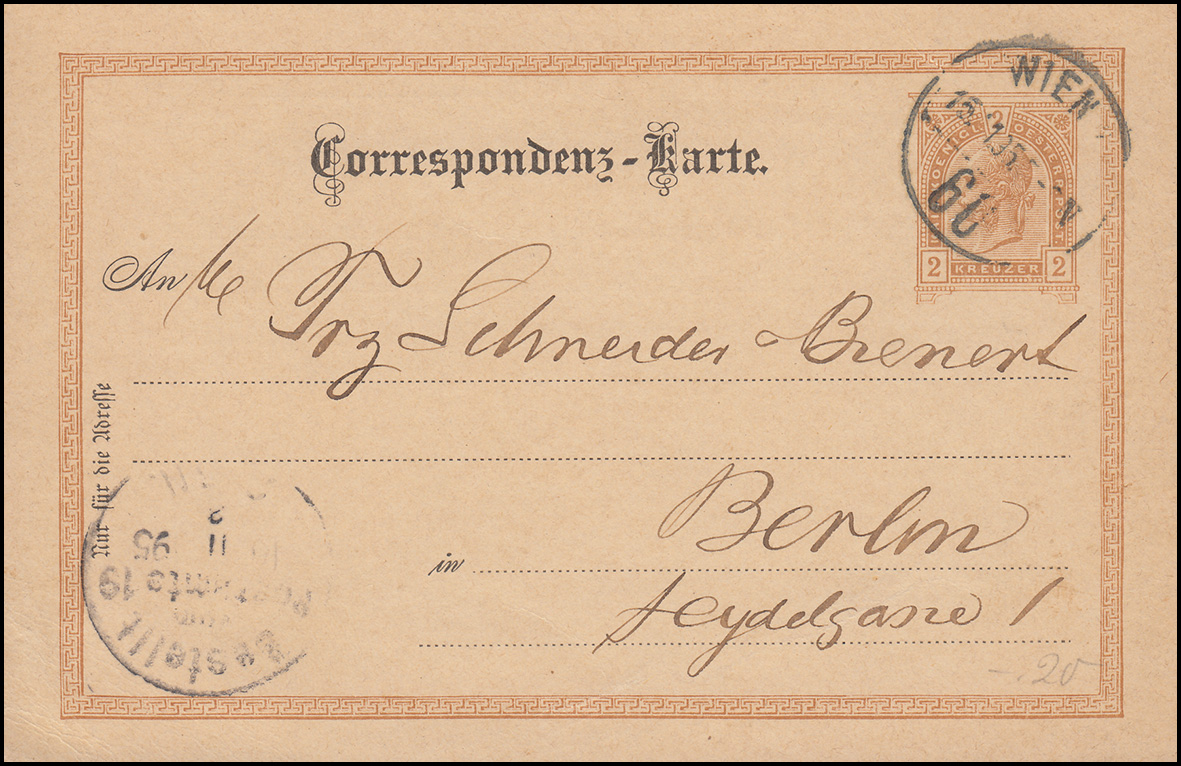 Correspondenz-Karte.
WIEN
2
KAIS. KOENIGL. OESTERR. POST.
2 KREUZER 2
An
Frz Schneider Bienert
Nur für die Adresse
Berlin
in
Seydelgasse 1
Bestellt
vom
Postamte 19
II
95
- .20